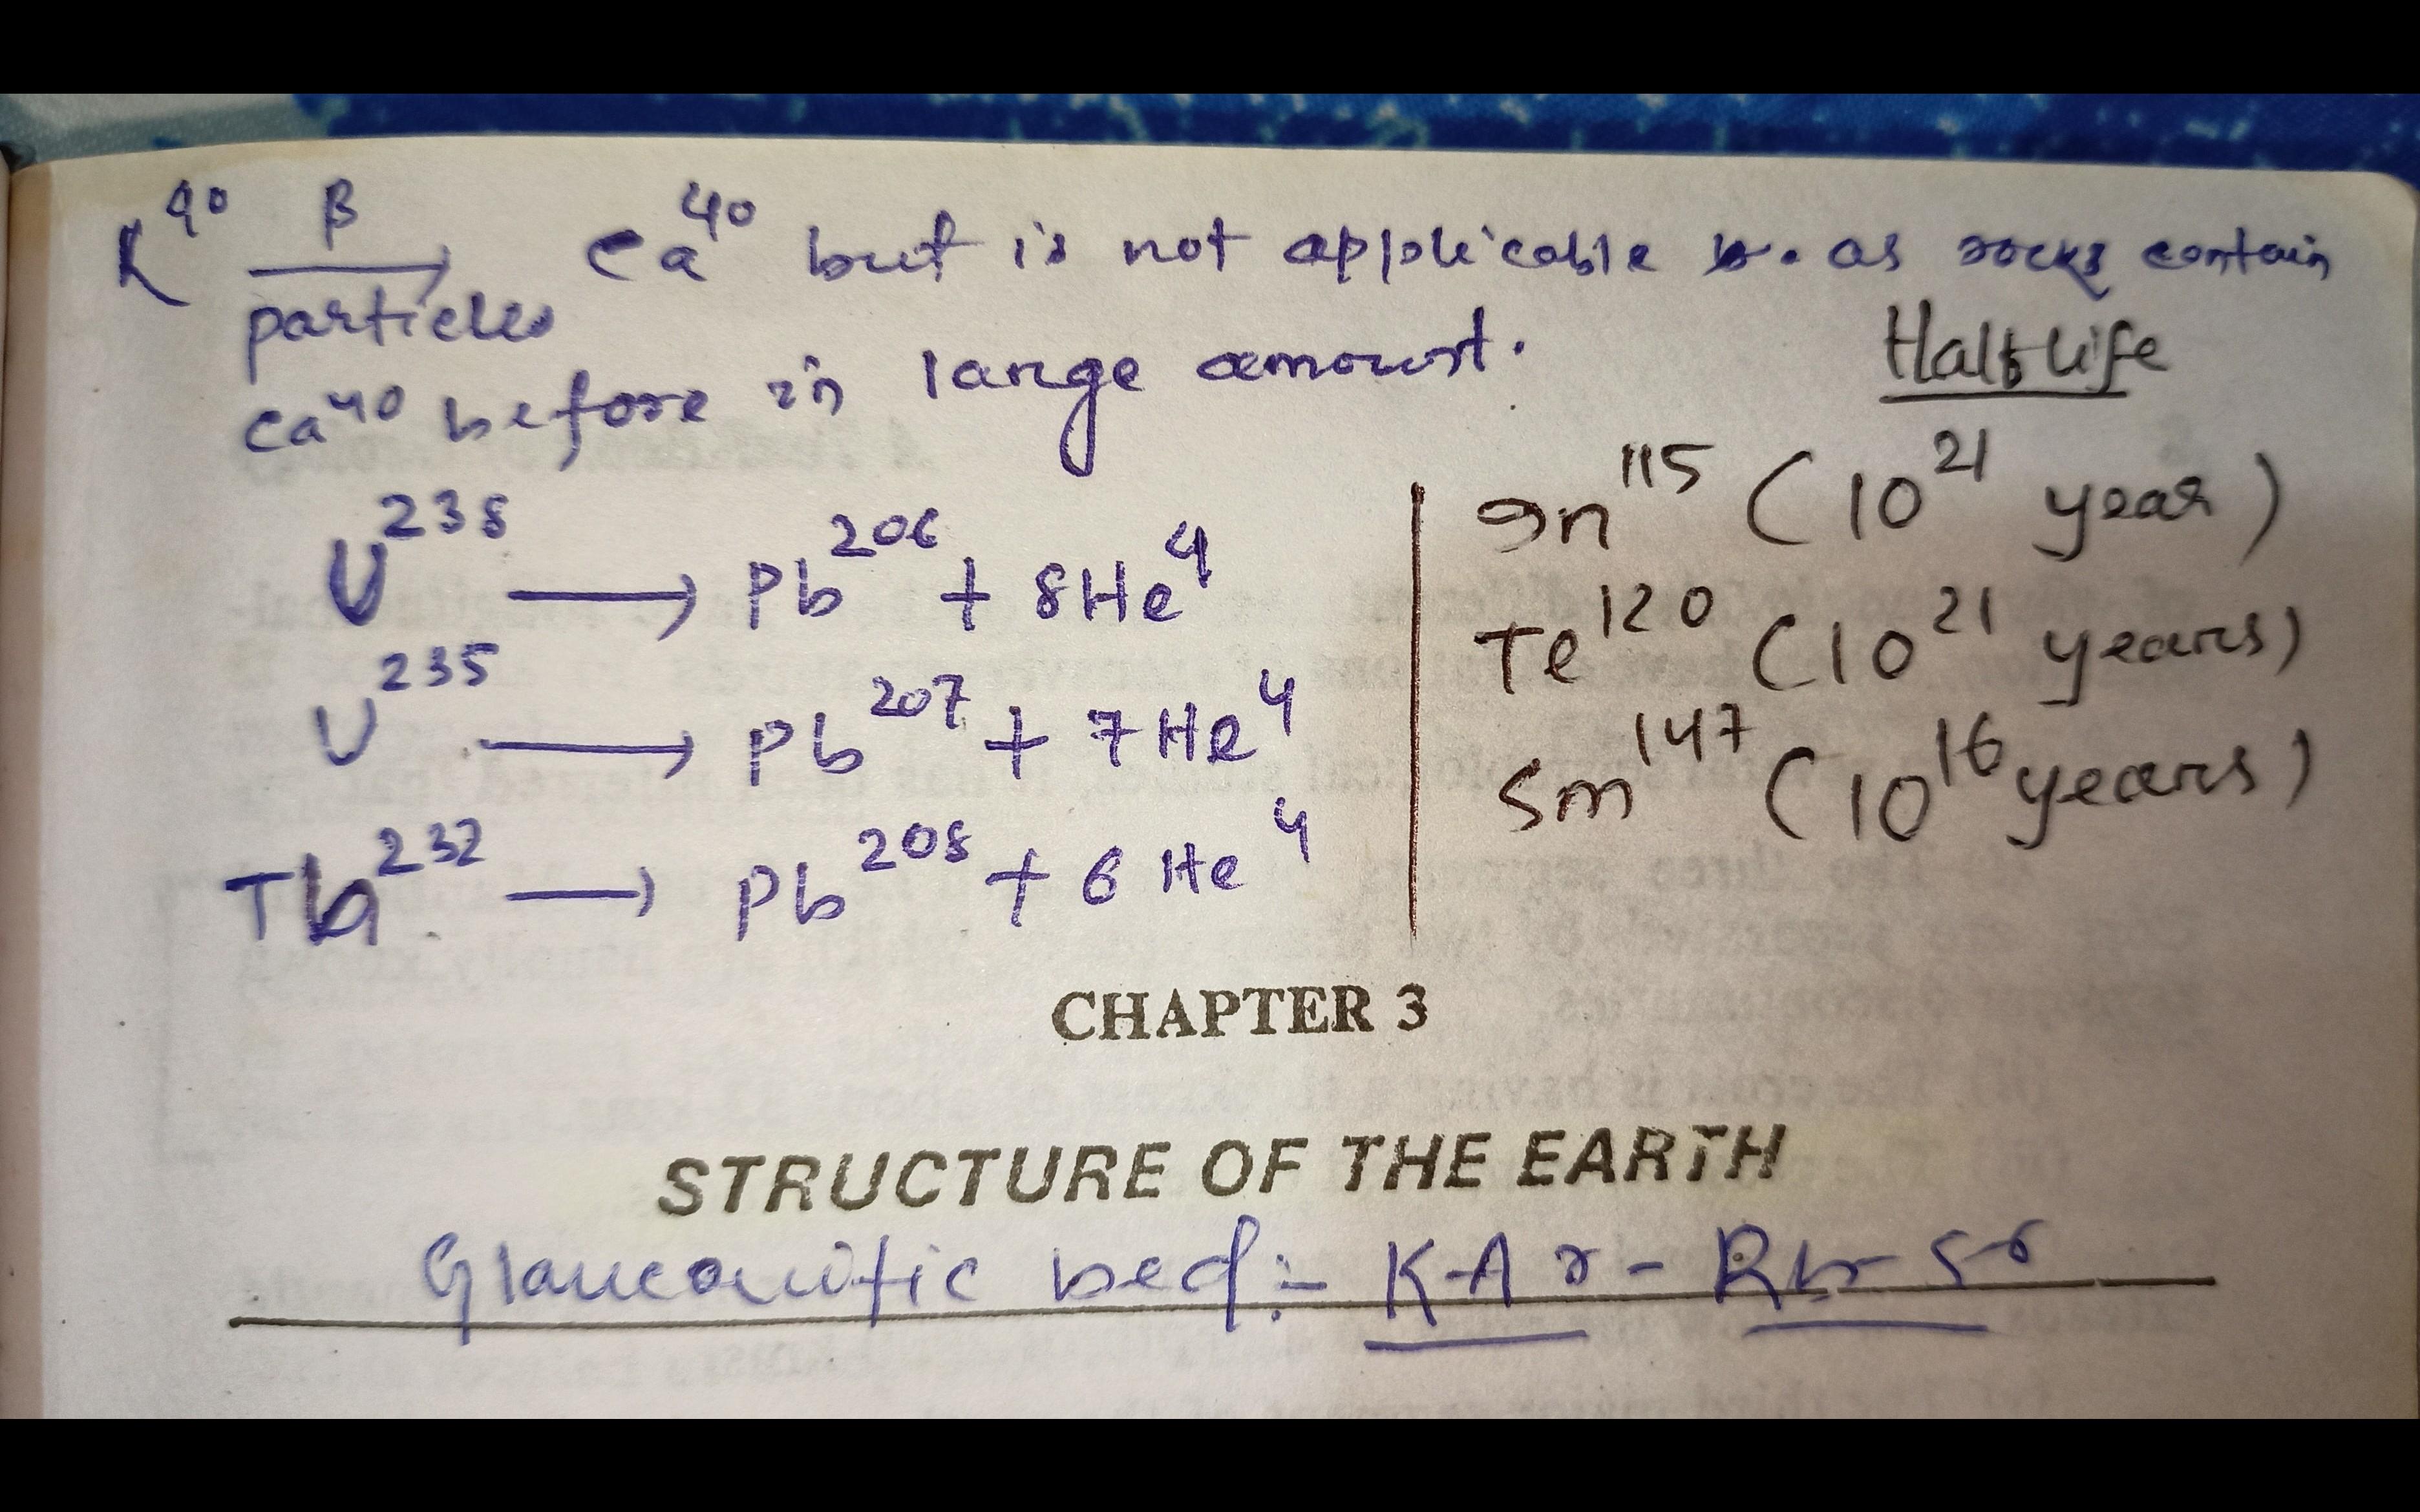 K⁴⁰ β→ particles Ca⁴⁰ but is not applicable as rocks contain
Ca⁴⁰ before in large amount.
Half Life
U²³⁸ → Pb²⁰⁶ + 8He⁴
In¹¹⁵ (10²¹ year)
U²³⁵ → Pb²⁰⁷ + 7He⁴
Te¹²⁰ (10²¹ years)
Th²³² → Pb²⁰⁸ + 6 He⁴
Sm¹⁴⁷ (10¹⁶ years)
CHAPTER 3
STRUCTURE OF THE EARTH
Glauconitic bed:- K-Ar - Rb-Sr